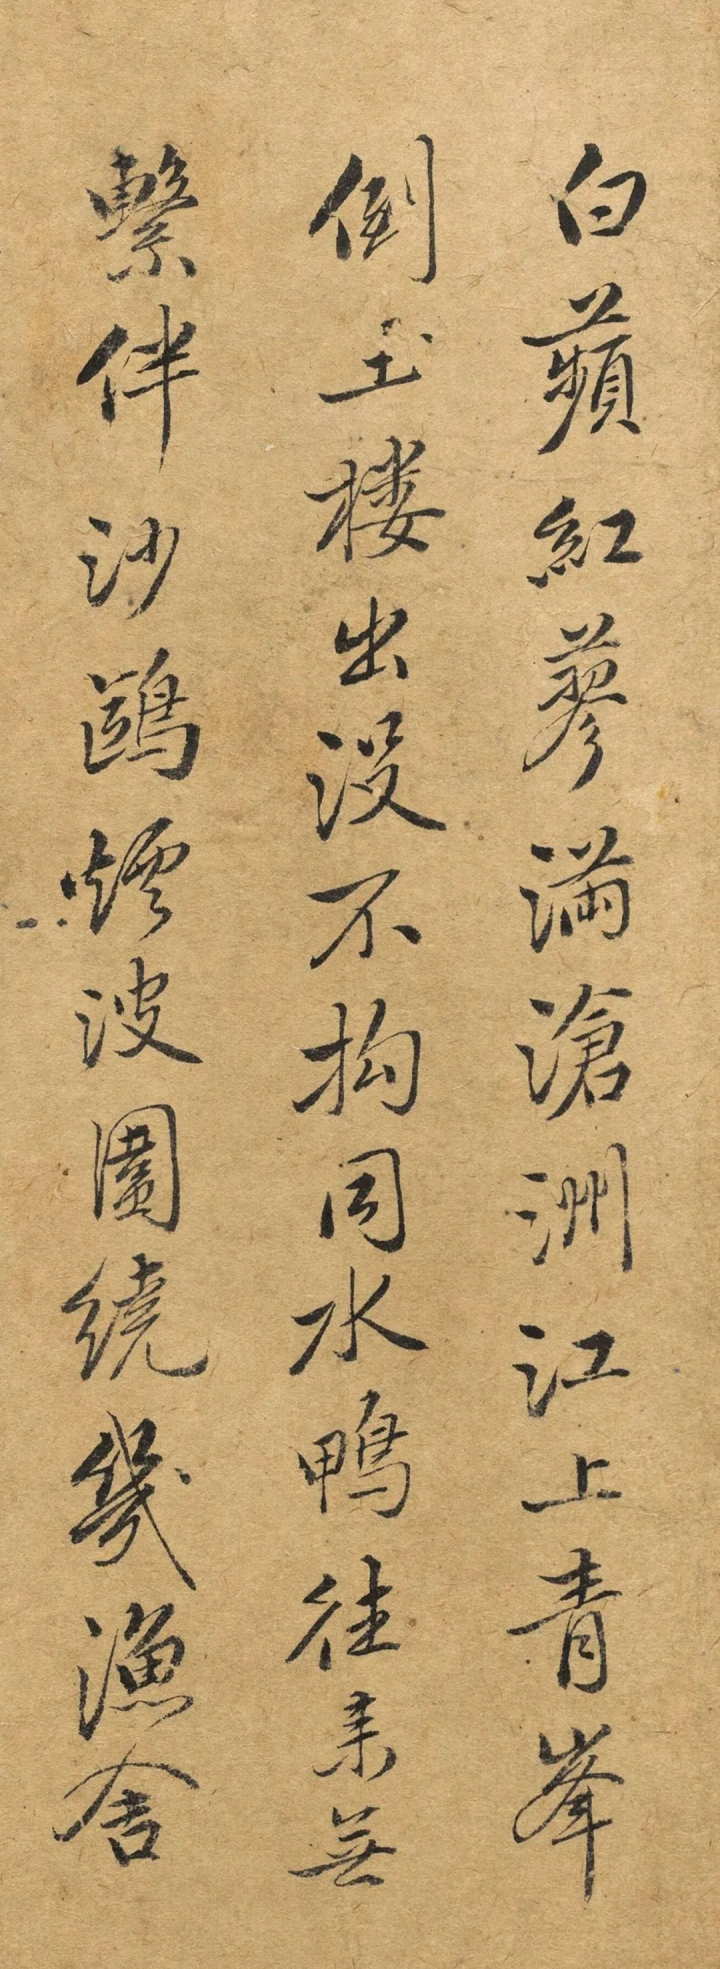 白蘋紅蓼滿滄洲江上青峯
倒玉楼出没不拘同水鴨往来無
繫伴沙鷗煙波圍繞幾漁舍